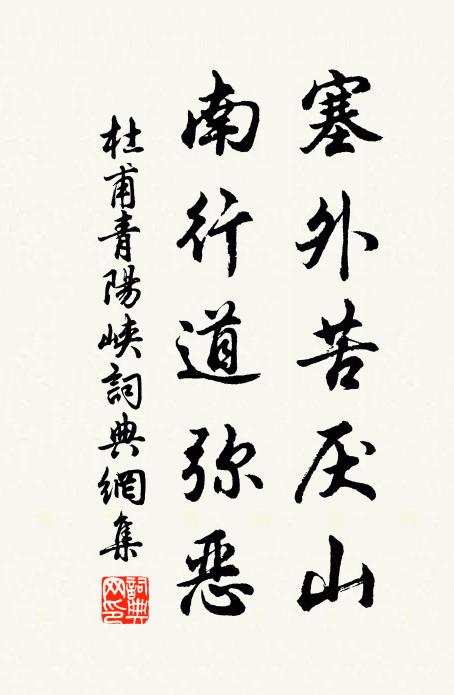 塞外苦厌山
南行道弥恶
杜甫青陽峽詞典網集
詞典網印